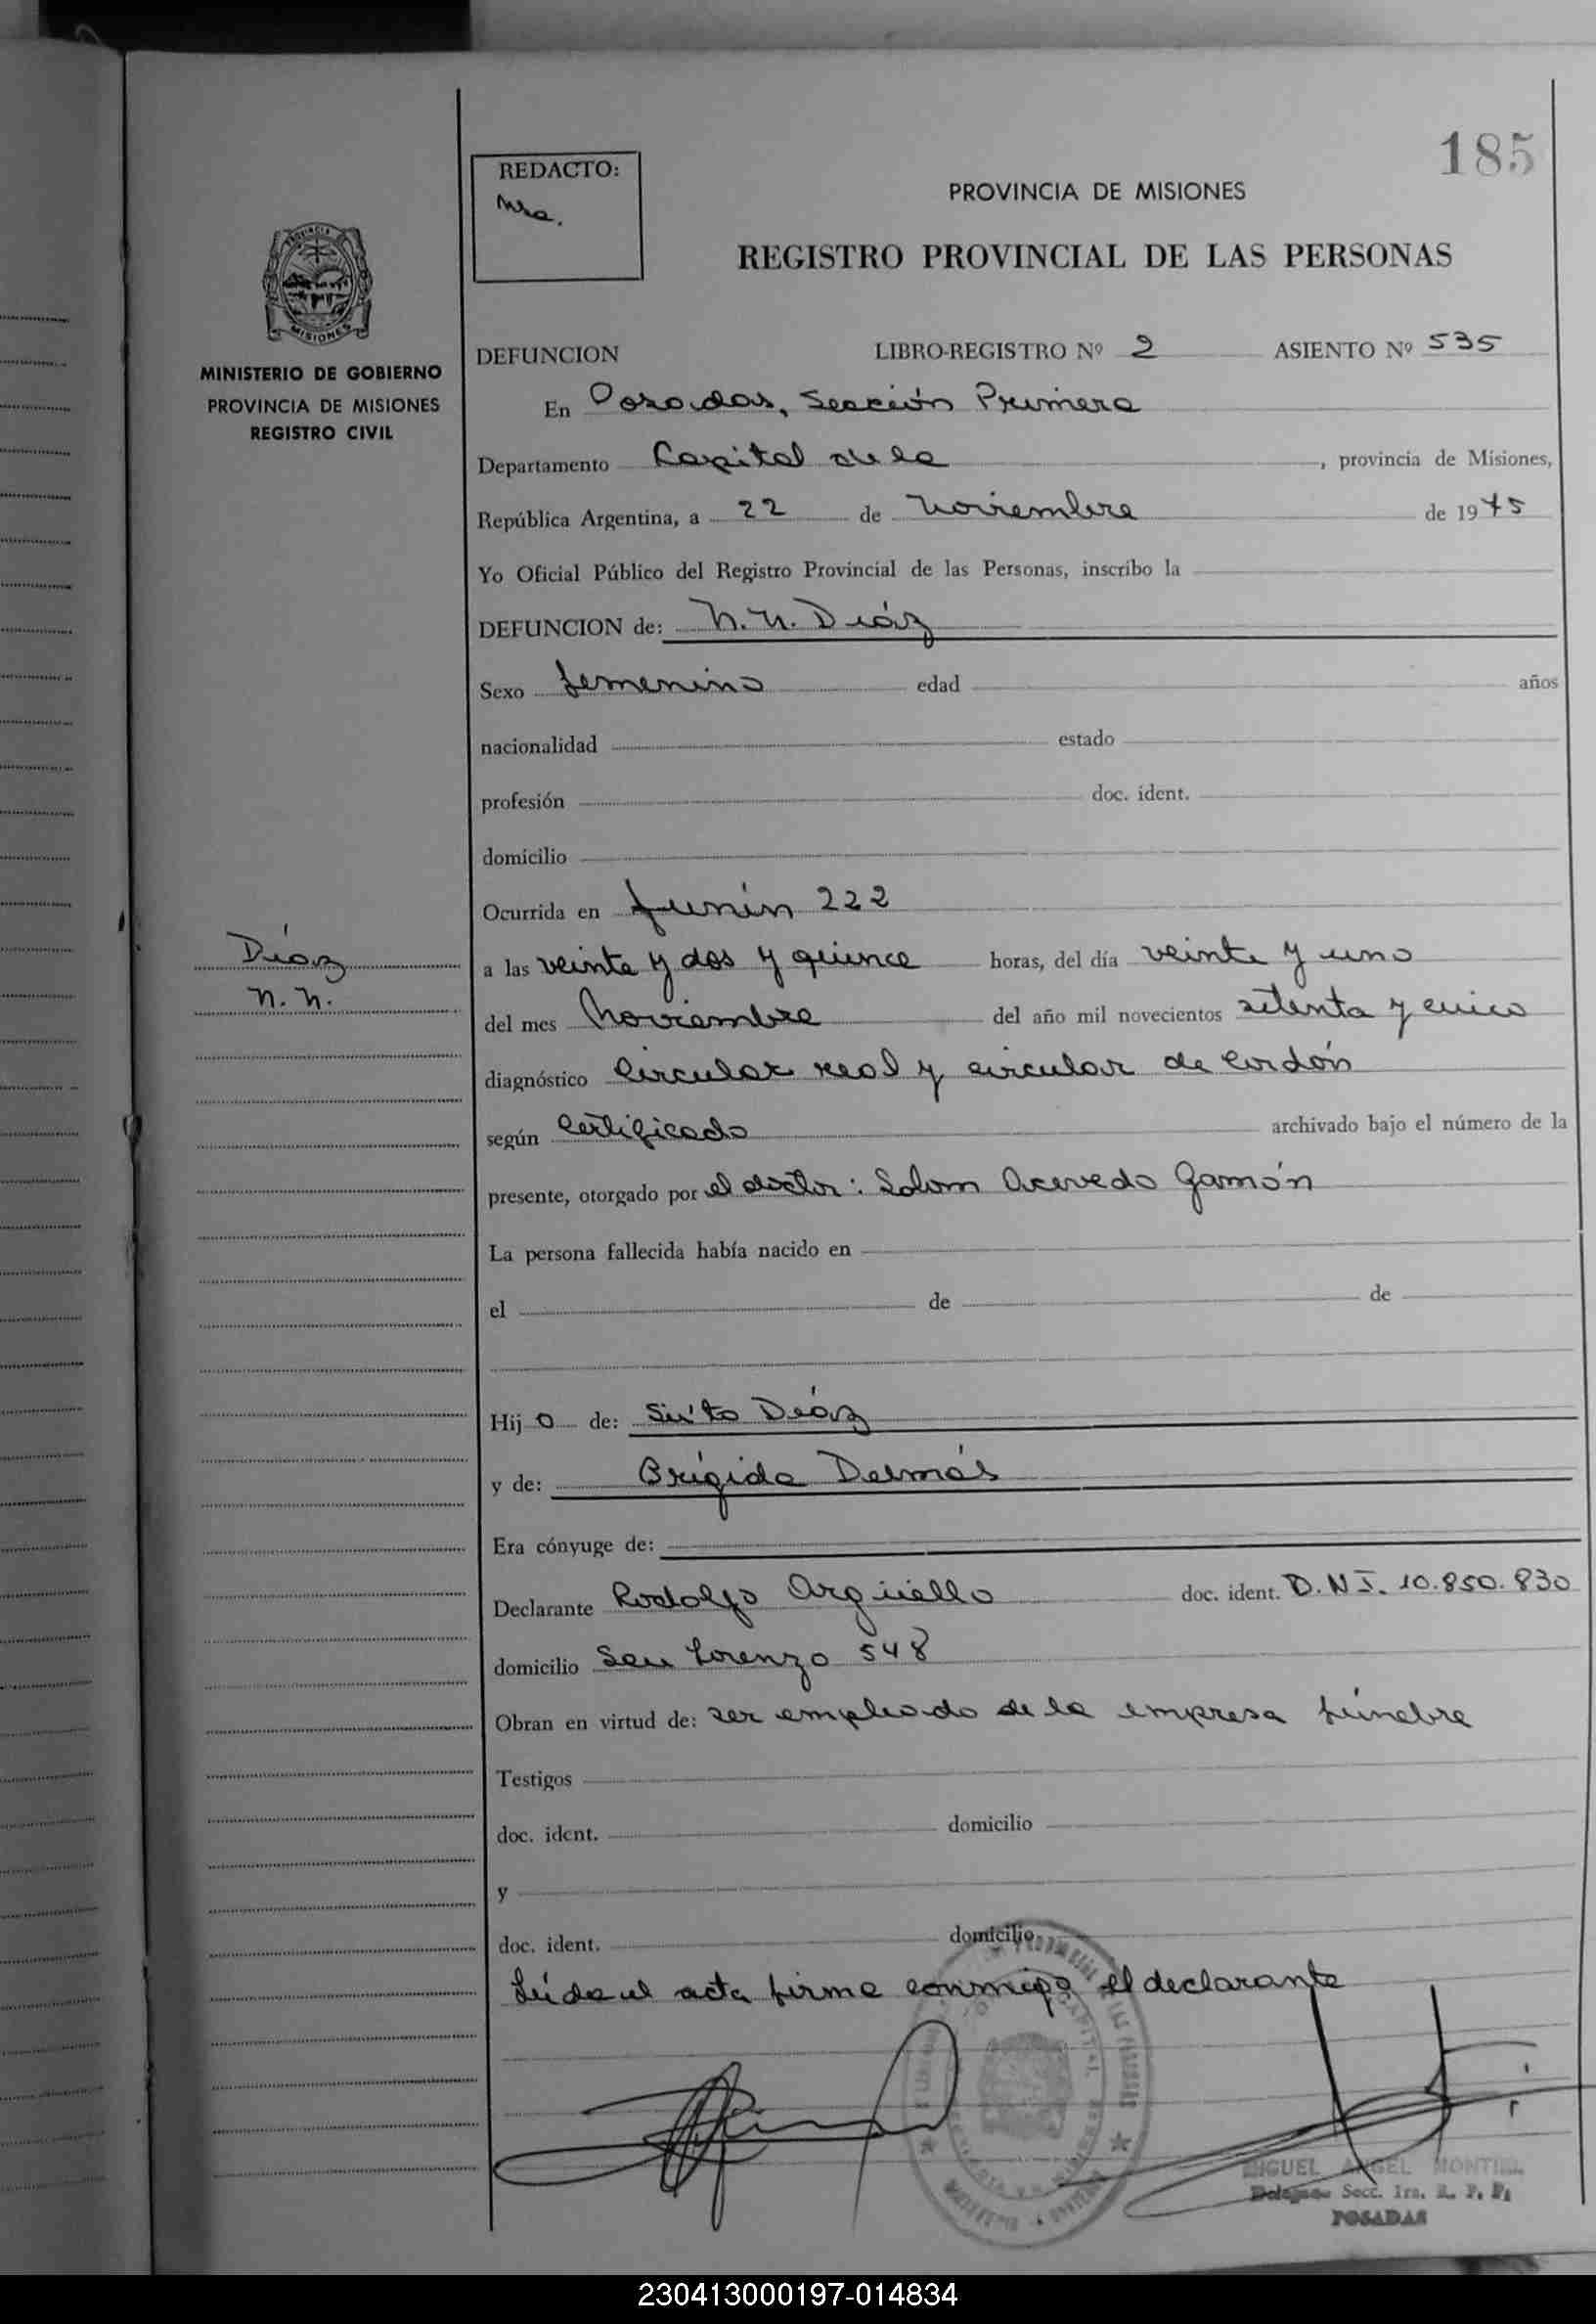 185
REDACTO:
PROVINCIA DE MISIONES
REGISTRO PROVINCIAL DE LAS PERSONAS
MISIONES
MINISTERIO DE GOBIERNO
PROVINCIA DE MISIONES
REGISTRO CIVIL
DEFUNCION LIBRO-REGISTRO Nº 2 ASIENTO Nº 535
En Posadas, Sección Primera
Departamento Capital de la , provincia de Misiones,
República Argentina, a 22 de Noviembre de 1975
Yo Oficial Público del Registro Provincial de las Personas, inscribo la
DEFUNCION de: N.N. Díaz
Sexo femenino edad años
nacionalidad estado
profesión doc. ident.
domicilio
Ocurrida en Junín 222
Díaz
N.N.
a las veinte y dos y quince horas, del día veinte y uno
del mes Noviembre del año mil novecientos setenta y cinco
diagnóstico Circular real y circular de Cordón
según Certificado archivado bajo el número de la
presente, otorgado por el doctor: Solom Acevedo Gamón
La persona fallecida había nacido en
el de de
Hij o de: Sixto Díaz
y de: Brígida Delmás
Era cónyuge de:
Declarante Rodolfo Argüello doc. ident. D.N.I. 10.850.830
domicilio San Lorenzo 548
Obran en virtud de: ser empleado de la empresa fúnebre
Testigos
doc. ident. domicilio
y
doc. ident. domicilio
Leída el acta firma conmigo el declarante
MIGUEL ANGEL MONTIEL
Secc. 1ra. R. P. P.
POSADAS
230413000197-014834